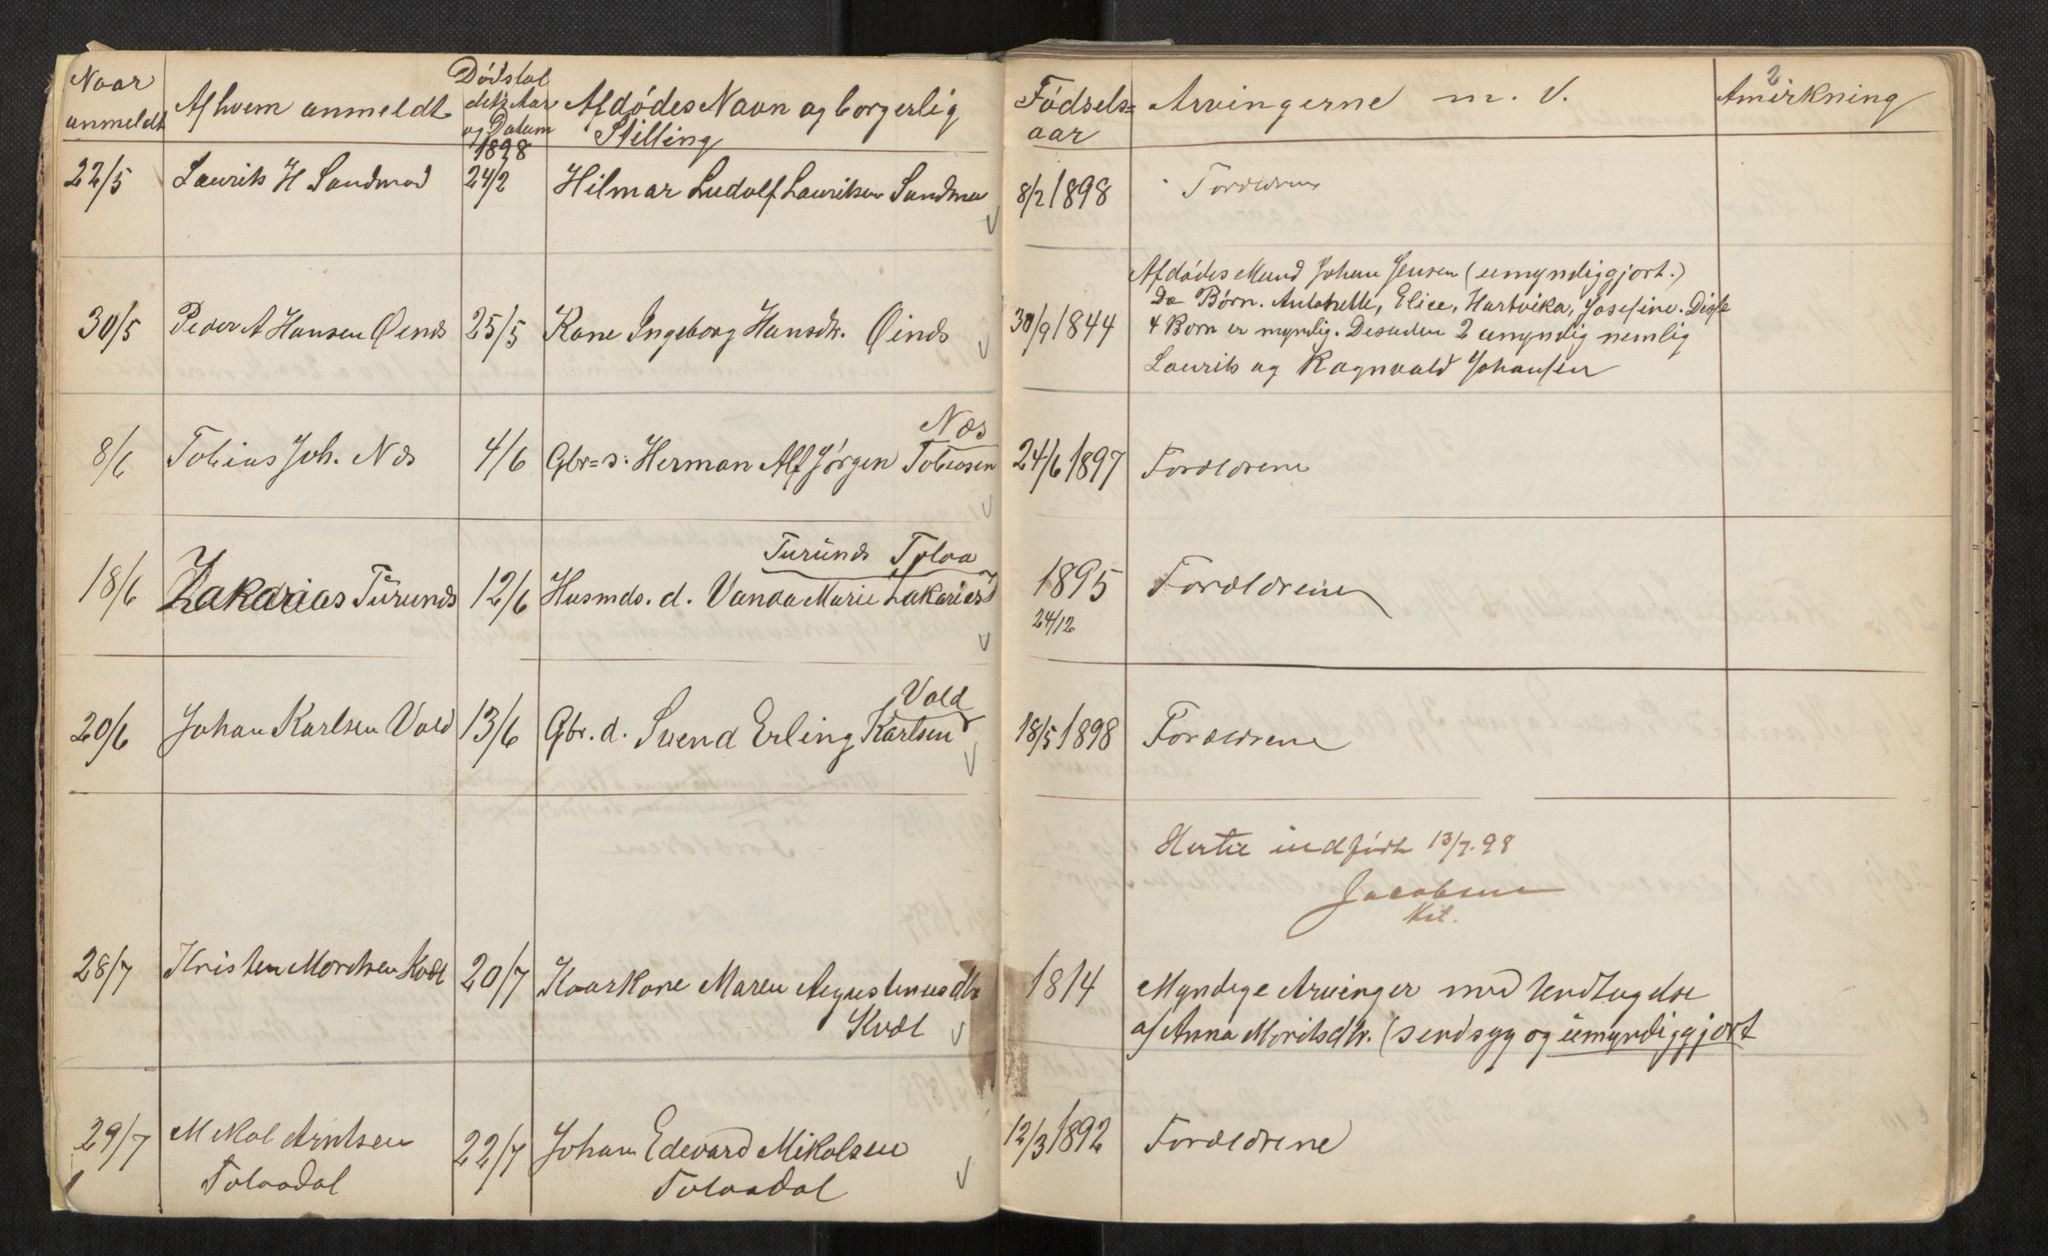 Naar anmeldt
Af hvem anmeldt
Dødsfal
dets Aar
og Datum
1898
Afdødes Navn og borgerlig
Stilling
Fødsels=
aar
Arvingerne m. V.
2
Anmerkning
22/5 Laurits H Sandmo 24/2 Hilmar Ludolf Lauritsen Sandmo 8/2 1898 Forældrene
30/5 Peder A Hansen Øinds 25/5 Kone Ingeborg Hansdtr. Øinds 30/9 1844
Afdødes Mand Johan Jensen (umyndiggjort.)
Børn. Antonette, Elise, Hartvika, Josefine. Disse
4 Børn er myndig. Desuden 2 umyndig nemlig
Laurits og Ragnvald Johansen
Næs
8/6 Tobias Joh. Næs 4/6 Gbr=s: Herman Alf Jørgen Tobiasen 24/6 1897 Forældrene
Turünds Tolaa
18/6 Zakarias Türunds 12/6 Husmds. d. Vanda Marie Zakariasd 1895 Forældrene
24/12
Vold
20/6 Johan Karlsen Vold 13/6 Gbr. d. Svend Erling Karlsen 18/5 1898 Forældrene
Hertil indført 13/7. 98
Jacobsen
Kst.
28/7 Kristen Moritsen Kvæl 20/7 Kaarkone Maren Augustinusdtr 1814 Myndige Arvinger med Undtagelse
Kvæl
af Anna Moritsdtr. (sindsyg og umyndiggjort
29/7 Mikal Arntsen 22/7 Johan Edevard Mikalsen 12/3 1892 Forældrene
Tolaadal
Tolaadal